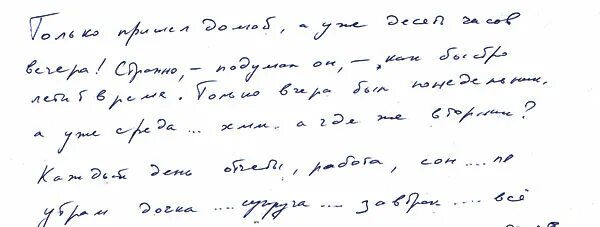 Только пришел домой, а уже десять часов
вечера! Странно, – подумал он, – как быстро
летит время. Только вчера был понедельник,
а уже среда... хмм. а где же вторник?
Каждый день отчеты, работа, сон .... по
утрам дочка .... супруга .... завтрак .... всё